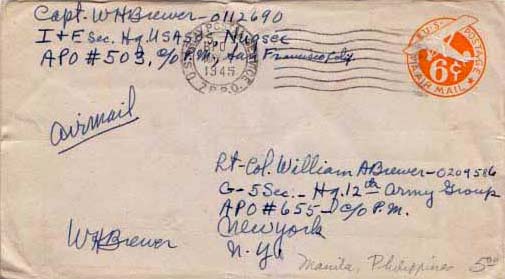 Capt. WHBrewer-0112690
I + E Sec. Hq. USASOS, Nugsec
APO #503, c/o P.M., San Francisco
U.S. POSTAGE
6¢
VIA AIR MAIL
1945
airmail
Lt-Col. William A Brewer-0209586
G-5 Sec- Hq. 12th Army Group
APO #655- c/o P.M.
New York
N.Y.
WHBrewer
Manila, Philippines 5.00